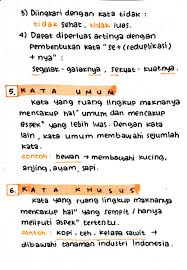 3) Diingkari dengan kata tidak :
tidak sehat, tidak luas.
4) Dapat diperluas artinya dengan
Pembentukan kata "se + (reduplikasi)
+ nya" :
segalak - galaknya, sekuat - kuatnya.
5. KATA UMUM
Kata yang ruang lingkup maknanya
mencakup hal² umum dan mencakup
aspek² yang lebih luas. Dengan kata
lain, kata umum membawahi sejumlah
kata.
contoh : hewan → membawahi kucing,
anjing, ayam, sapi.
6. KATA KHUSUS
kata yang ruang lingkup maknanya
mencakup hal² yang sempit / hanya
meliputi aspek² tertentu.
contoh : kopi, teh, kelapa sawit →
dibawahi tanaman industri Indonesia.